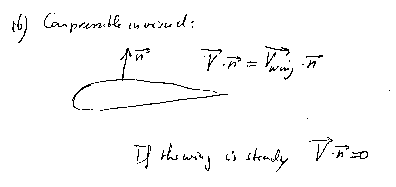 16) Compressible inviscid:
n⃗
V⃗ · n⃗ = V⃗wing · n⃗
If the wing is steady V⃗ · n⃗ = 0